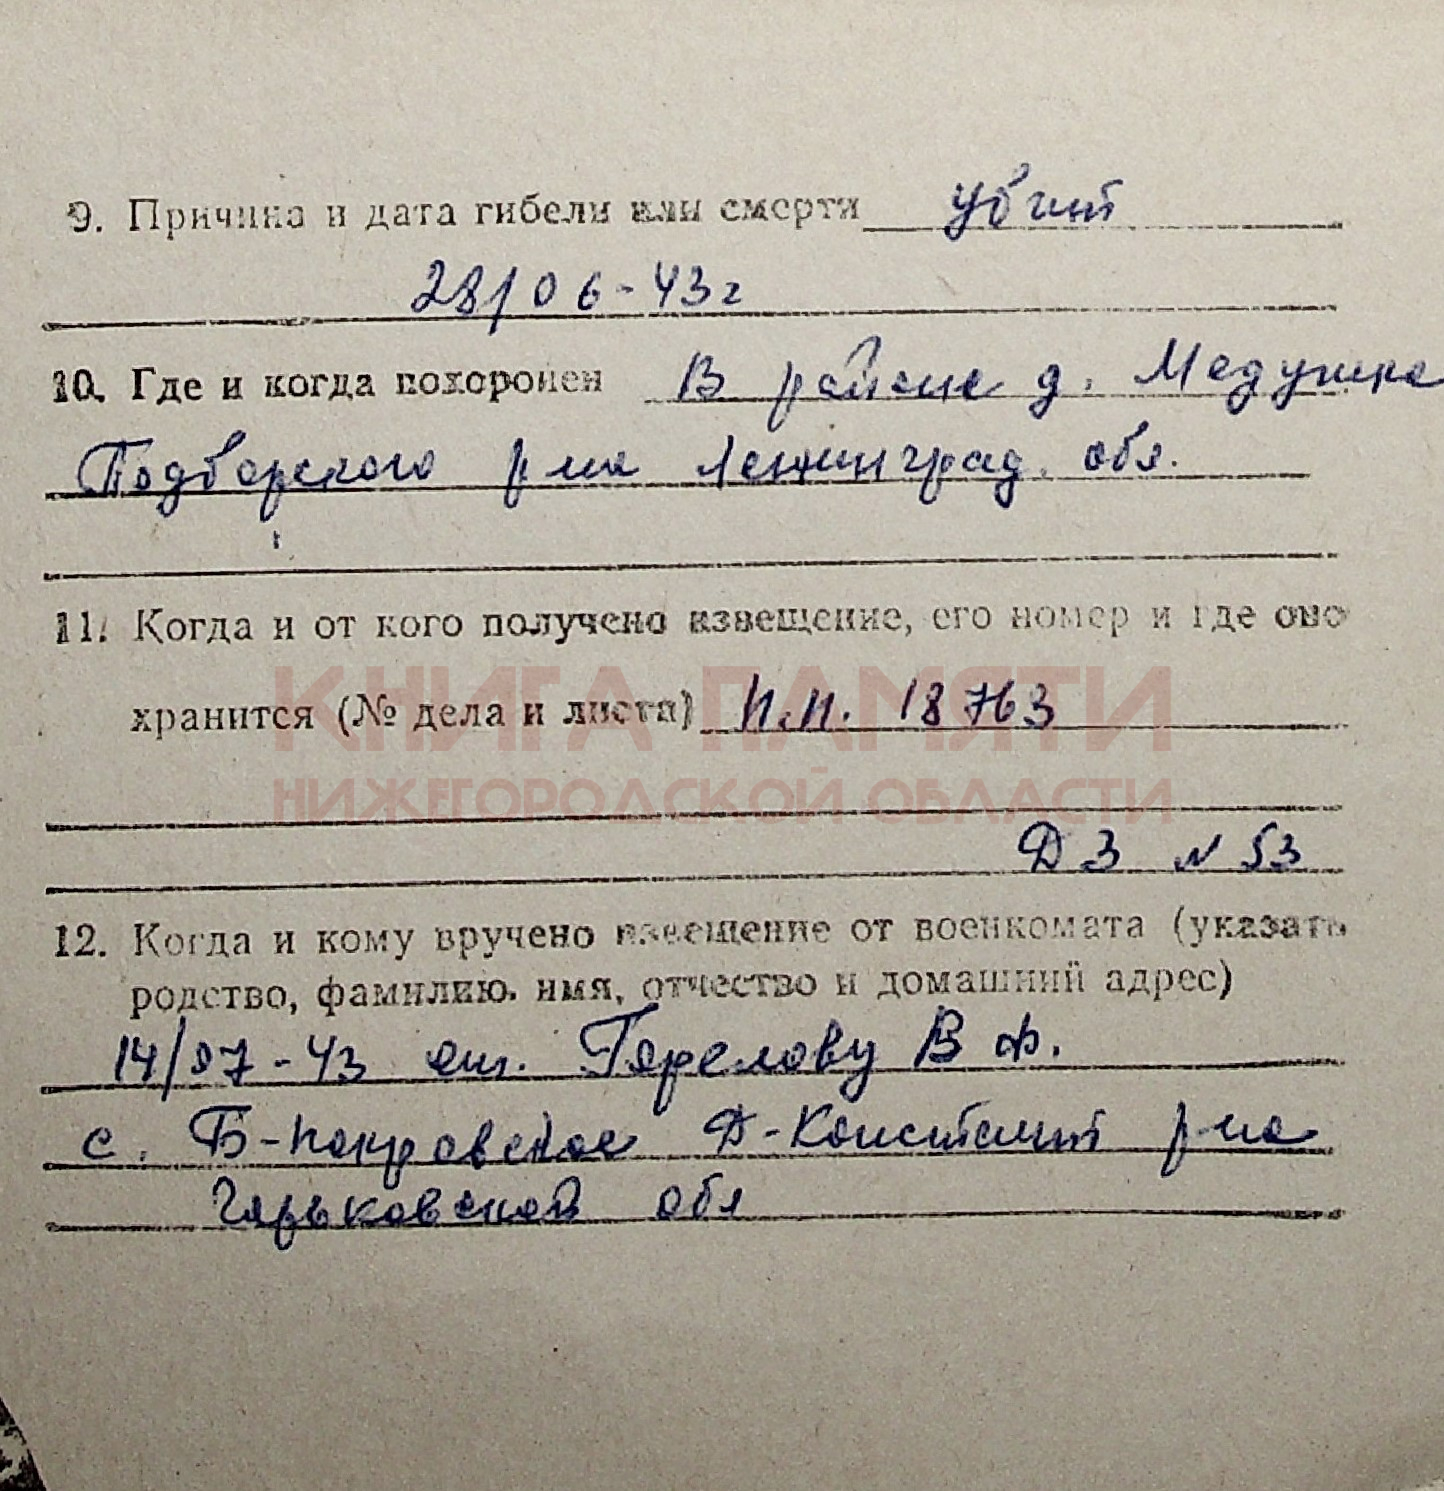 9. Причина и дата гибели или смерти убит
28/06-43г
10. Где и когда похоронен В районе д. Медушка
Подборского р-на Ленинград. обл.
11. Когда и от кого получено извещение, его номер и где оно
КНИГА ПАМЯТИ
хранится (№ дела и листа) п.п. 18763
НИЖЕГОРОДСКОЙ ОБЛАСТИ
Д 3 N 53
12. Когда и кому вручено извещение от военкомата (указать
родство, фамилию, имя, отчество и домашний адрес)
14/07-43 от. Горелову В Ф.
с. Б-Покровское Д-Констант р-на
Горьковской обл